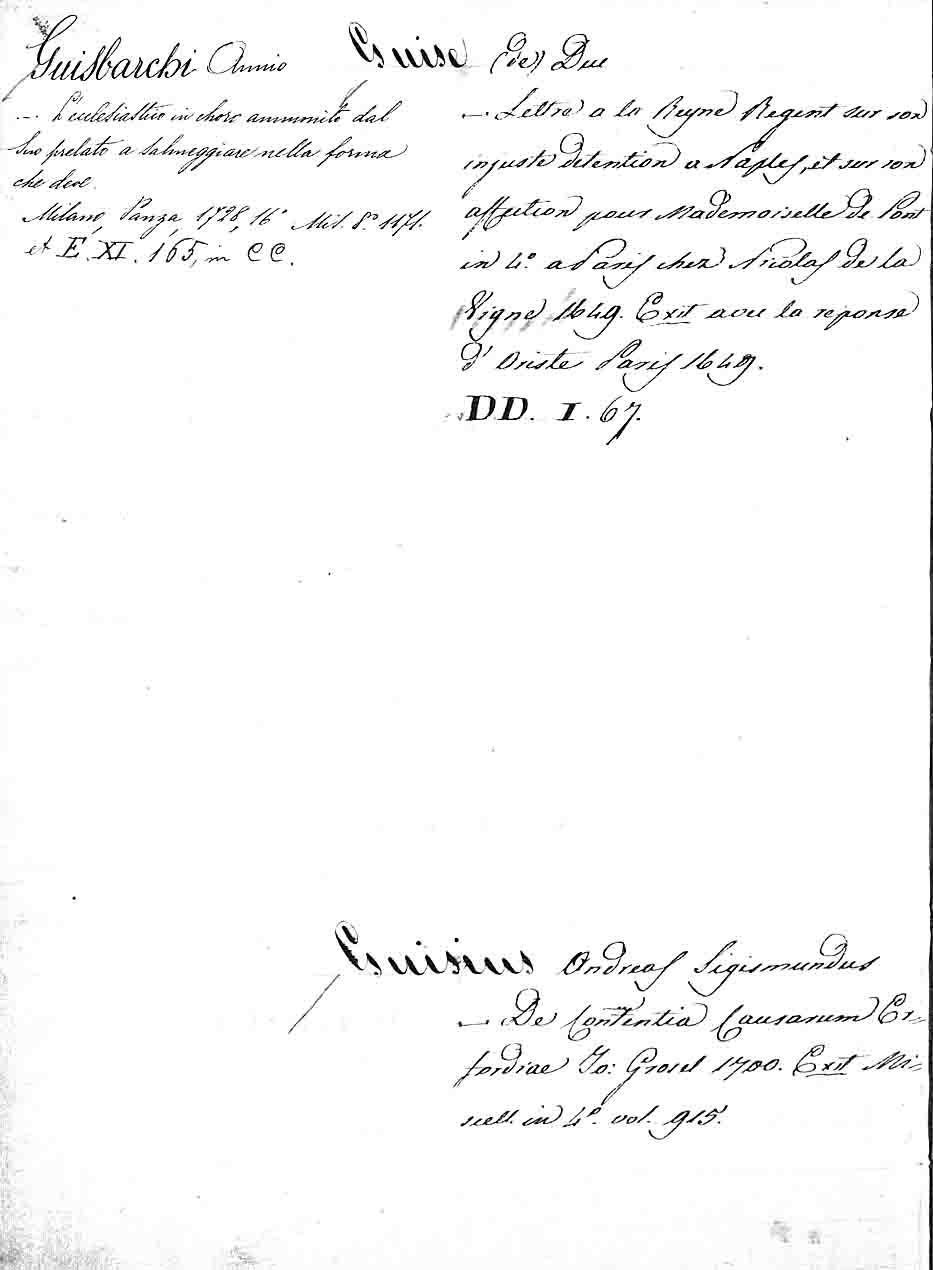 Guisbarchi Annio
— L'ecclesiastico in choro ammonito dal
suo prelato a salmeggiare nella forma
che deve.
Milano, Panza, 1728, 16° Mil. 8.° 1171.
et E. XI. 165, in CC.
Guise (de) Duc
— Lettre a la Reyne Regent sur son
injuste detention a Naples, et sur son
affection pour Mademoiselle de Pont
in 4.° a Paris chez Nicolas de la
Vigne 1649. Exit avec la reponse
d' Oriste Paris 1649.
DD. I. 67.
Guisius Andreas Sigismundus
— De Causarum Er-
fordiae Jo: Grosel 1700. Exit Mi-
scell. in 4.° vol. 915.